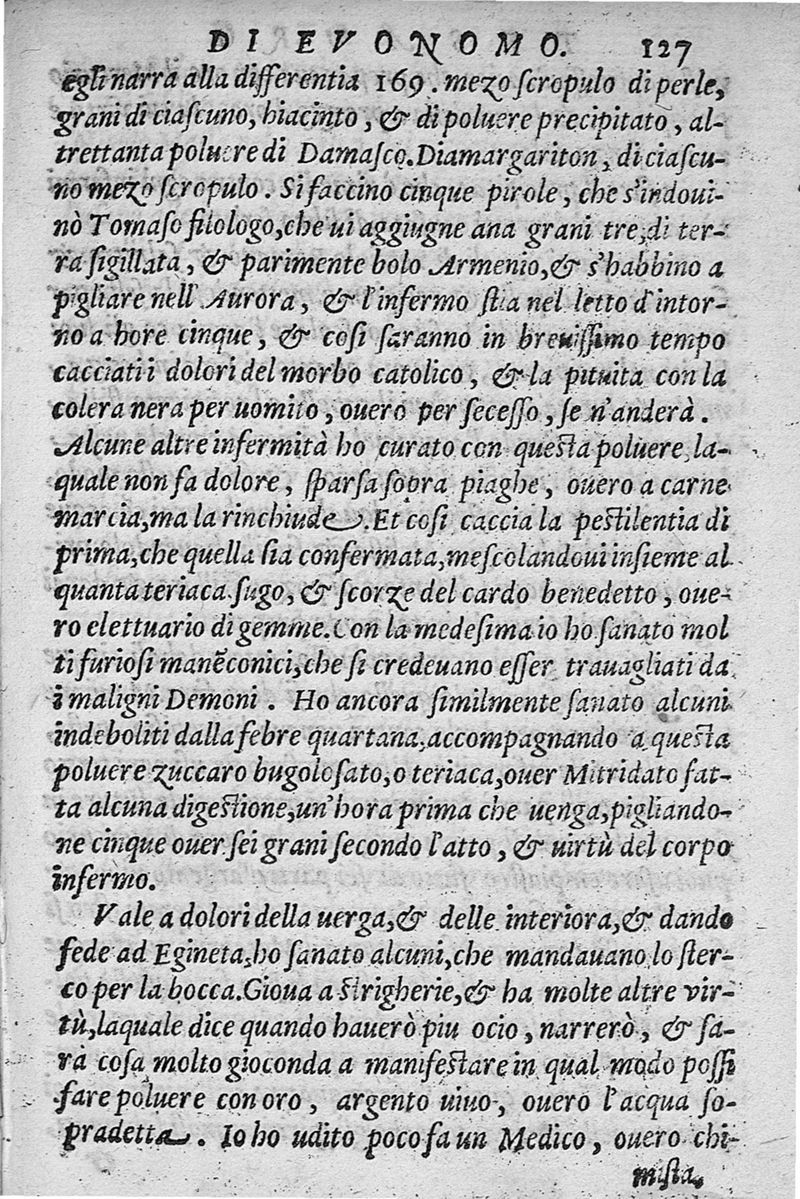 DI EVONOMO. 127
egli narra alla differentia 169. mezo ſcropulo di perle,
grani di ciaſcuno, hiacinto, & di poluere precipitato, al-
trettanta poluere di Damaſco. Diamargariton, di ciaſcu-
no mezo ſcropulo. Si faccino cinque pirole, che s'indoui-
nò Tomaſo filologo, che ui aggiugne ana grani tre, di ter-
ra ſigillata, & parimente bolo Armenio, & s'habbino a
pigliare nell'Aurora, & l'infermo ſtia nel letto d'intor-
no a hore cinque, & coſi ſaranno in breuiſſimo tempo
cacciati i dolori del morbo catolico, & la pituita con la
colera nera per uomito, ouero per ſeceſſo, ſe n'anderà.
Alcune altre infermità ho curato con queſta poluere, la-
quale non fa dolore, ſparſa ſopra piaghe, ouero a carne
marcia, ma la rinchiude. Et coſi caccia la peſtilentia di
prima, che quella ſia confermata, meſcolandoui inſieme al
quanta teriaca ſugo, & ſcorze del cardo benedetto, oue-
ro elettuario di gemme. Con la medeſima io ho ſanato mol
ti furioſi manēconici, che ſi credeuano eſſer trauagliati da
i maligni Demoni. Ho ancora ſimilmente ſanato alcuni
indeboliti dalla febre quartana, accompagnando a queſta
poluere zuccaro bugoloſato, o teriaca, ouer Mitridato fat-
ta alcuna digeſtione, un'hora prima che uenga, pigliando-
ne cinque ouer ſei grani ſecondo l'atto, & uirtù del corpo
infermo.
Vale a dolori della uerga, & delle interiora, & dando
fede ad Egineta, ho ſanato alcuni, che mandauano lo ſter-
co per la bocca. Gioua a ſtrigherie, & ha molte altre vir-
tù, laquale dice quando hauerò piu ocio, narrerò, & ſa-
rà coſa molto gioconda a manifeſtare in qual modo poſſi
fare poluere con oro, argento uiuo, ouero l'acqua ſo-
pradetta. Io ho udito poco fa un Medico, ouero chi-
miſta,